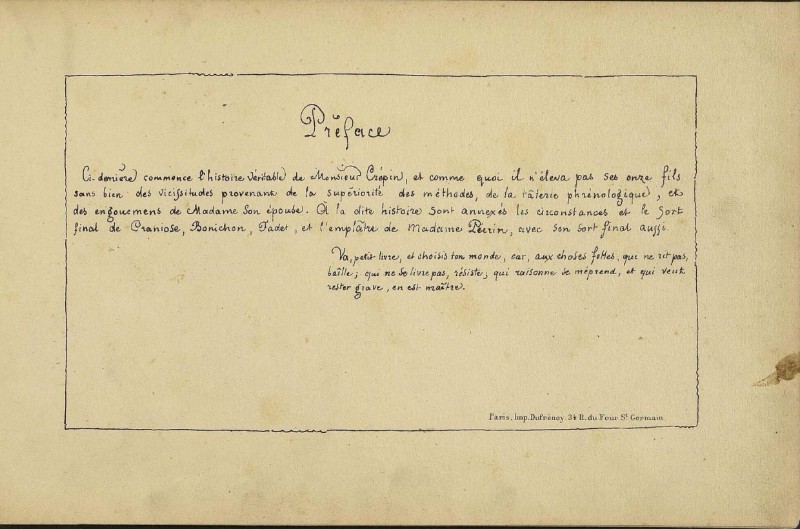 Préface
Ci-derrière commence l'histoire véritable de Monsieur Crépin, et comme quoi il n'éleva pas ses onze fils
sans bien des vicissitudes provenant de la supériorité des méthodes, de la tâterie phrénologique, et
des engouemens de Madame son épouse. À la dite histoire sont annexés les circonstances et le sort
final de Craniose, Bonichon, Fadet, et l'emplâtre de Madame Péerin, avec son sort final aussi.
Va, petit livre, et choisis ton monde, car, aux choses folles, qui ne rit pas,
baîlle; qui ne se livre pas, résiste; qui raisonne se méprend, et qui veut
rester grave, en est maître.
Paris, Imp. Dufrénoy. 34 R. du Four St. Germain